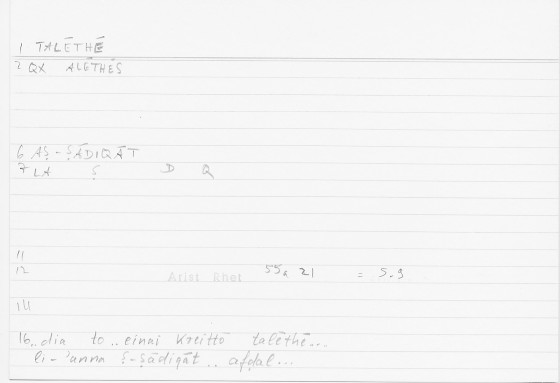 1 TALĒTHĒ
2 QX ALĒTHĒS
6 AṢ-ṢĀDIQĀT
7 LA Ṣ D Q
11
12 Arist Rhet 55a 21 = 5.9
14
16 ..dia to .. einai kreittō talēthē...
li-'anna ṣ-ṣādiqāt .. afḍal...